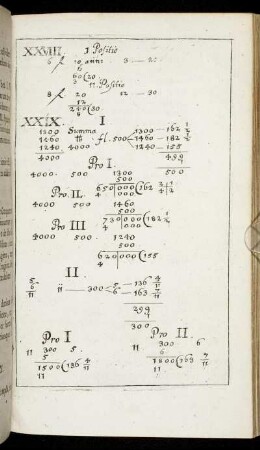 XXVIII. I Positio
6 10 anni 3 — 20
6
60 (20
II Positio
8 20 12 — 30
12
240 (30
XXIX. I
1300 Summa 1300 — 162 1/2
1460 th fl. 500 1460 — 182 1/2
1240 1240 — 155
4000 Pro I 500
4000 500 1300
500
Pro II. 650000 (162 1/2
4000 500 1460
500
Pro III 730000 (182 1/2
4000 500 1240
500
620000 (155
II
5 5 — 136 4/11
6 11 — 300
11 6 — 163 7/11
299
1
300
Pro I Pro II
11 300 5. 11 300 6
5 6
1500 (136 4/11 1800 (163 7/11
11 11